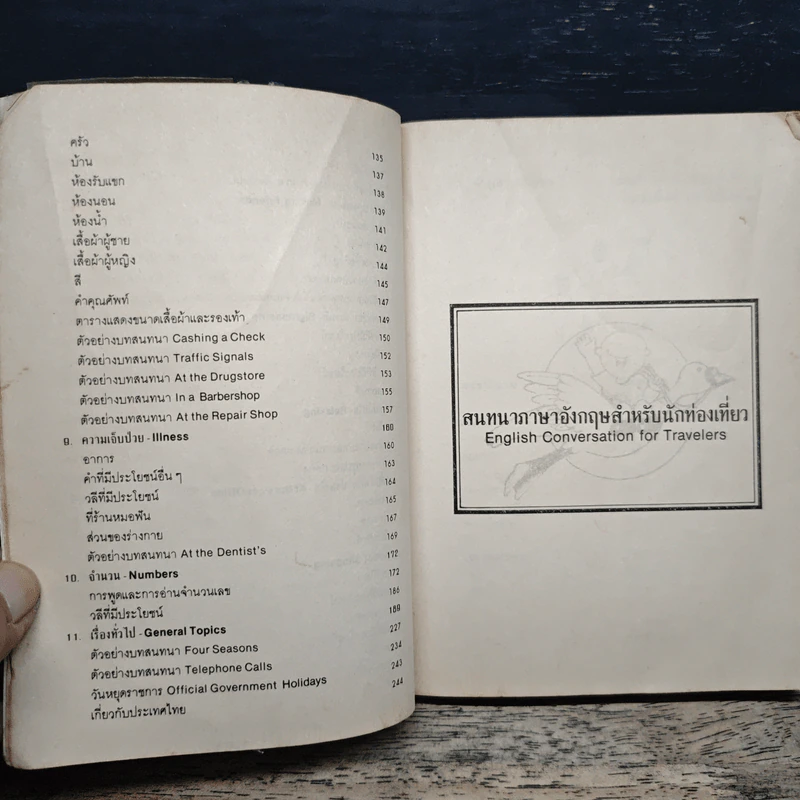 ครัว 135
บ้าน 137
ห้องรับแขก 138
ห้องนอน 139
ห้องน้ำ 141
เสื้อผ้าผู้ชาย 142
เสื้อผ้าผู้หญิง 144
สี 145
คำคุณศัพท์ 147
ตารางแสดงขนาดเสื้อผ้าและรองเท้า 149
ตัวอย่างบทสนทนา Cashing a Check 150
ตัวอย่างบทสนทนา Traffic Signals 152
ตัวอย่างบทสนทนา At the Drugstore 153
ตัวอย่างบทสนทนา In a Barbershop 155
ตัวอย่างบทสนทนา At the Repair Shop 157
9. ความเจ็บป่วย - Illness 160
อาการ 160
คำที่มีประโยชน์อื่น ๆ 163
วลีที่มีประโยชน์ 164
ที่ร้านหมอฟัน 165
ส่วนของร่างกาย 167
ตัวอย่างบทสนทนา At the Dentist's 169
10. จำนวน - Numbers 172
การพูดและการอ่านจำนวนเลข 172
วลีที่มีประโยชน์ 186
11. เรื่องทั่วไป - General Topics 188
ตัวอย่างบทสนทนา Four Seasons 227
ตัวอย่างบทสนทนา Telephone Calls 234
วันหยุดราชการ Official Government Holidays 243
เกี่ยวกับประเทศไทย 244
สนทนาภาษาอังกฤษสำหรับนักท่องเที่ยว
English Conversation for Travelers